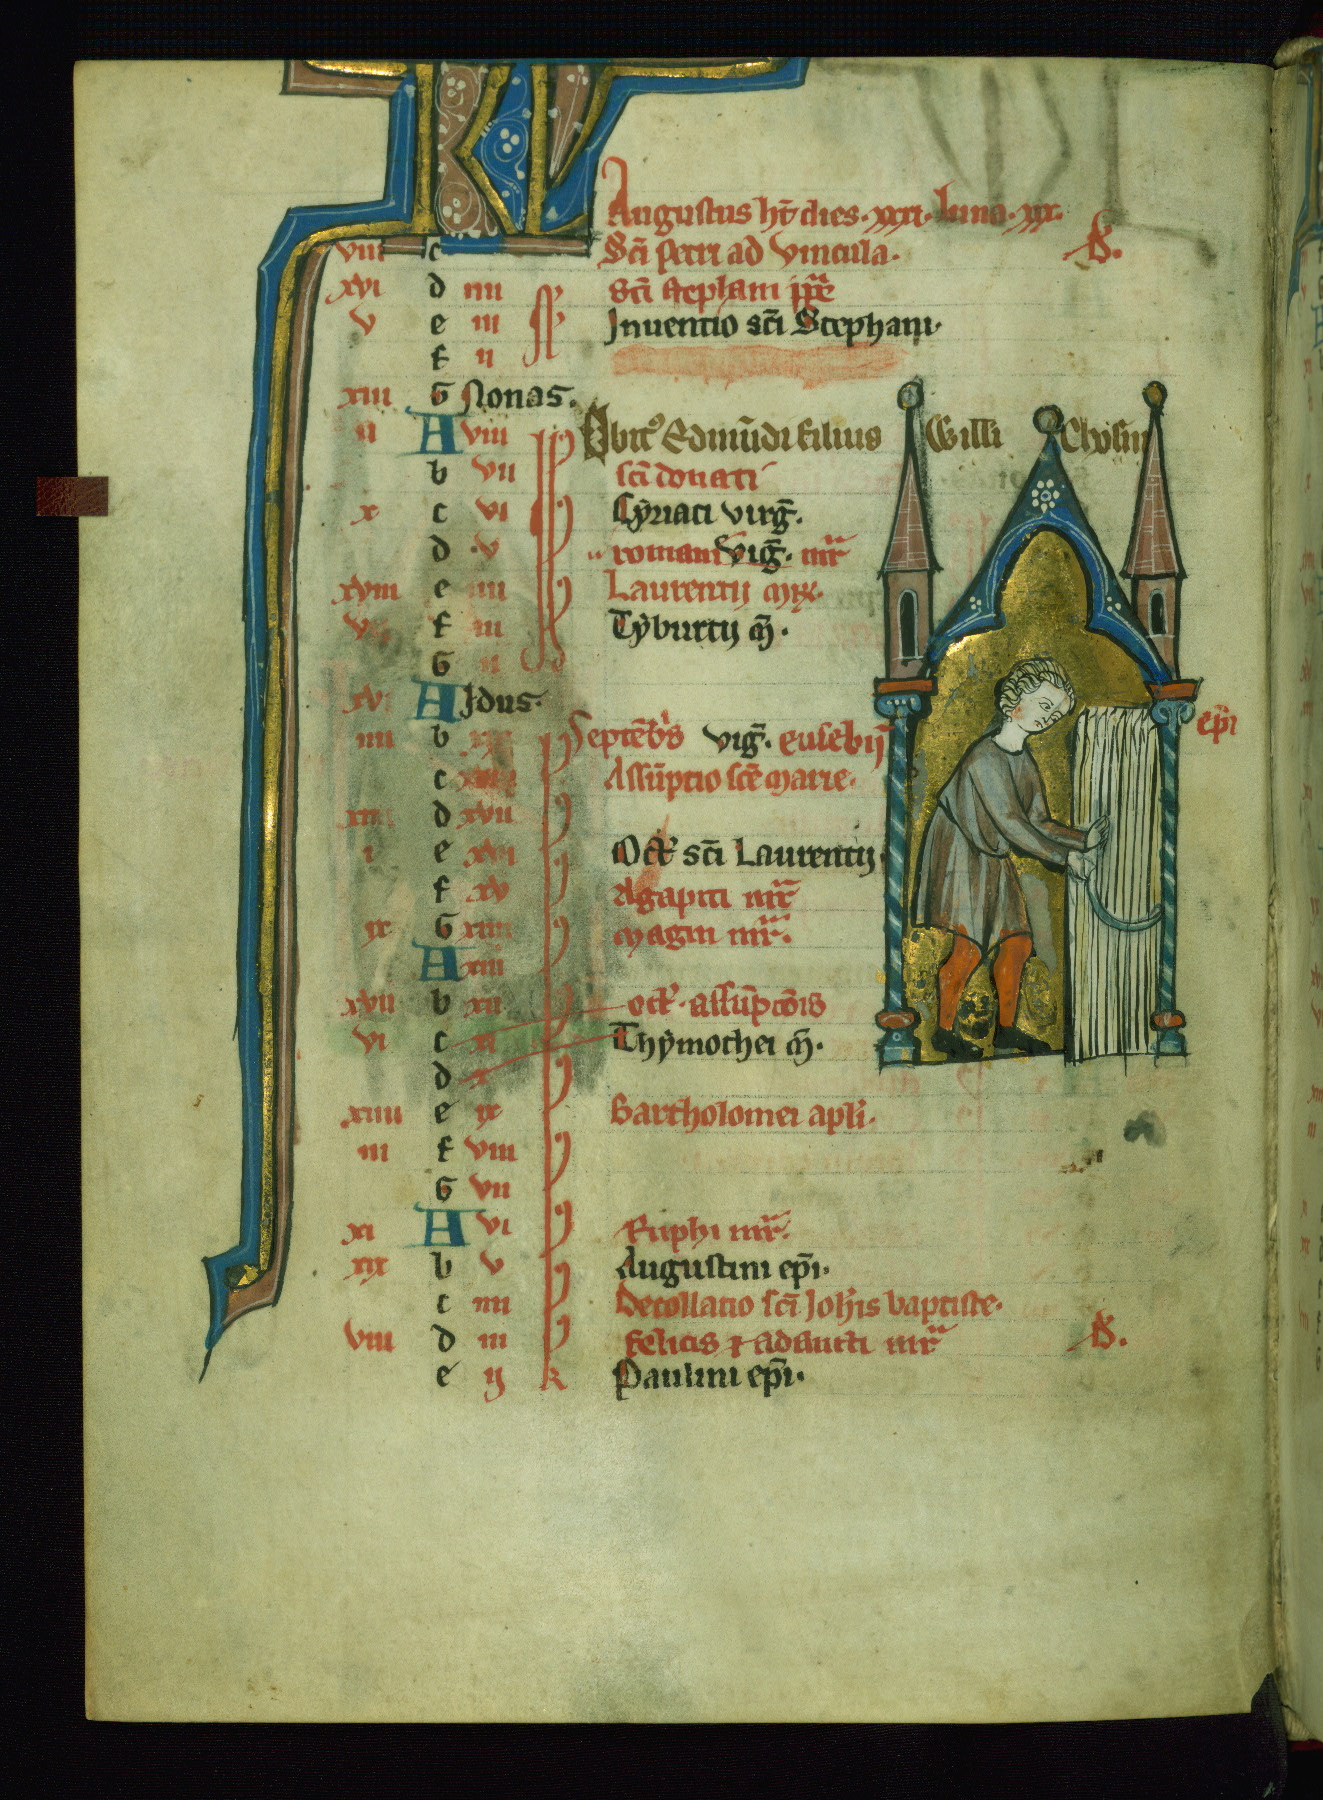 KL
Augustus ht dies. xxxi. luna. xx.
viii c Sci Petri ad vincula.
xvi d iiii sci stephani ppe
v e iii Inuentio sci Stephani.
f ii
xiii G Nonas.
ii A viii Obit Edmudi filius Willi
b vii sci donati
x c vi Cyriaci virg.
d v romani vig. mr
xviii e iiii Laurentij
f iii Tyburtij m.
G ii
A Idus.
iiii b xix Septebris vig. eusebij epi
c Assuptio sce marie.
d xvii
i e xvi Oct sci Laurentij.
f xv Agapiti mr
ix G xiiii magni mr.
A xiii
xvii b xii oct. assupcois
vi c xi Thymothei m.
d x
xiiii e ix Bartholomei apli.
iii f viii
G vii
xi A vi Ruphi mr.
xix b v Augustini epi.
c iiii Decollatio sci Johis baptiste.
viii d iii Felicis adaucti mr
e ij k Paulini epi.